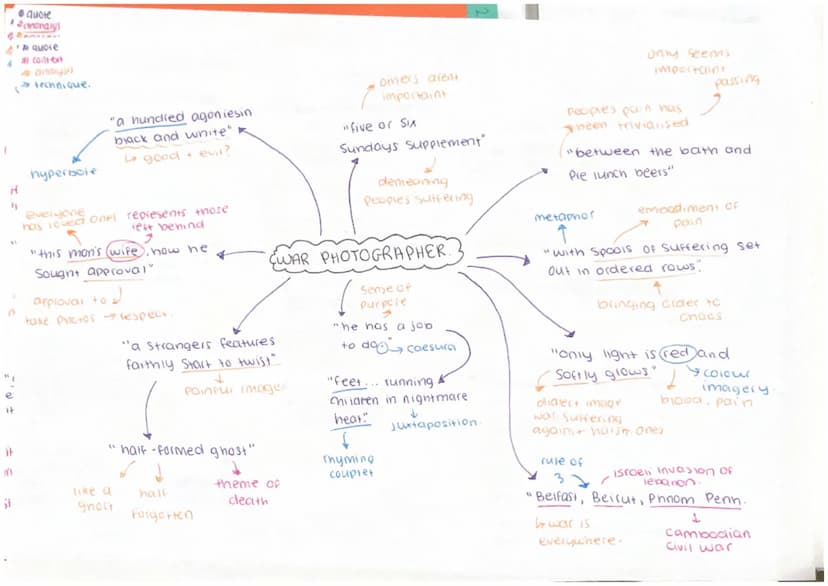 quote
analysis
quote
context
analysis
technique.
2
"a hundred agoniesin
black and white"
↳ good + evil?
hyperbole
others arent
important
"five or six
Sundays supplement"
demeaning
peoples suffering
only seems
important
passing
peoples pain has
been trivialised
"between the bath and
pre lunch beers"
everyone
has loved ones
represents those
left behind
"this man's wife, how he
sought approval"
approval to
take photos → respect.
WAR PHOTOGRAPHER.
metaphor
embodiment of
pain
"with spools of suffering set
out in ordered rows".
bringing order to
chaos
sense of
purpose
"he has a job
to do." → caesura
"feet... running
children in nightmare
heat."
juxtaposition.
rhyming
couplet
"a strangers features
faintly start to twist"
painful image.
"half-formed ghost"
like a
ghost
half
forgotten
theme of
death
"only light is red and
softly glows"
colour
imagery.
blood, pain
image
war suffering
rule of
3
israeli invasion of
lebanon.
"Belfast, Beirut, Phnom Penh.
↳ war is
everywhere.
cambodian
civil war